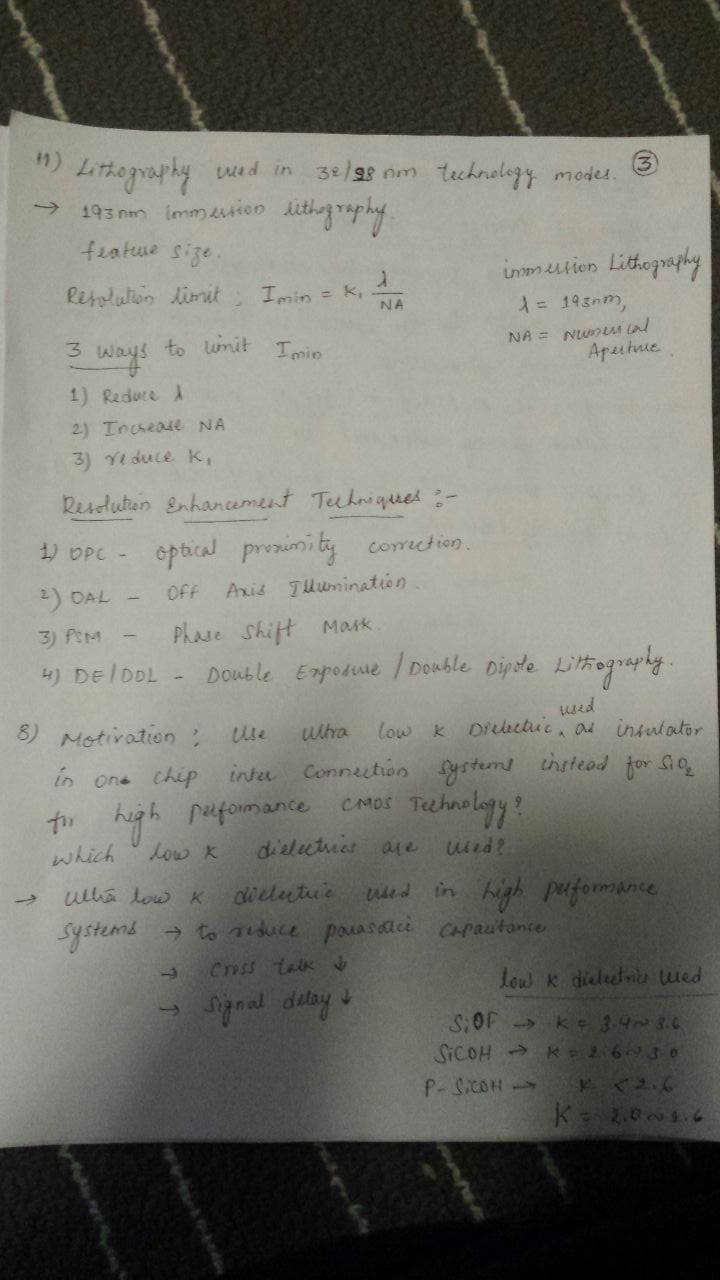 11) Lithography used in 32/28 nm technology modes. ③
→ 193nm immersion lithography.
feature size.
Resolution limit ; Imin = K₁ λ/NA
immersion Lithography
λ = 193nm,
NA = Numerical
Aperture.
3 ways to limit Imin
1) Reduce λ
2) Increase NA
3) reduce K₁
Resolution Enhancement Techniques :-
1) OPC - optical proximity correction.
2) OAL - Off Axis Illumination.
3) PSM - Phase Shift Mask.
4) DE/DDL - Double Exposure / Double Dipole Lithography.
8) Motivation : Use ultra low k Dielectric, used as insulator
in one chip inter connection systems instead for SiO₂
for high performance CMOS Technology?
which low k dielectrics are used?
→ Ultra low k dielectric used in high performance
systems → to reduce parasatic capacitance
→ Cross talk ↓
→ Signal delay ↓
low k dielectrics used
SiOF → k = 3.4~3.6
SiCOH → k = 2.6~3.0
P-SiCOH → k < 2.6
K = 2.0~2.6